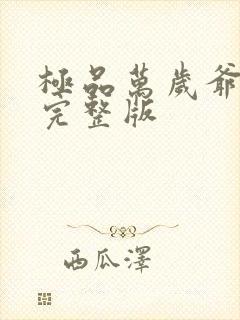 極品萬歲爺
完整版
西瓜澤